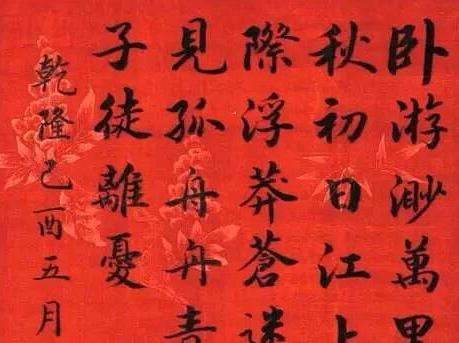 卧游渺萬里
秋初日江上
際浮莽蒼迷
見孤舟舟
子徒離憂
乾隆己酉五月